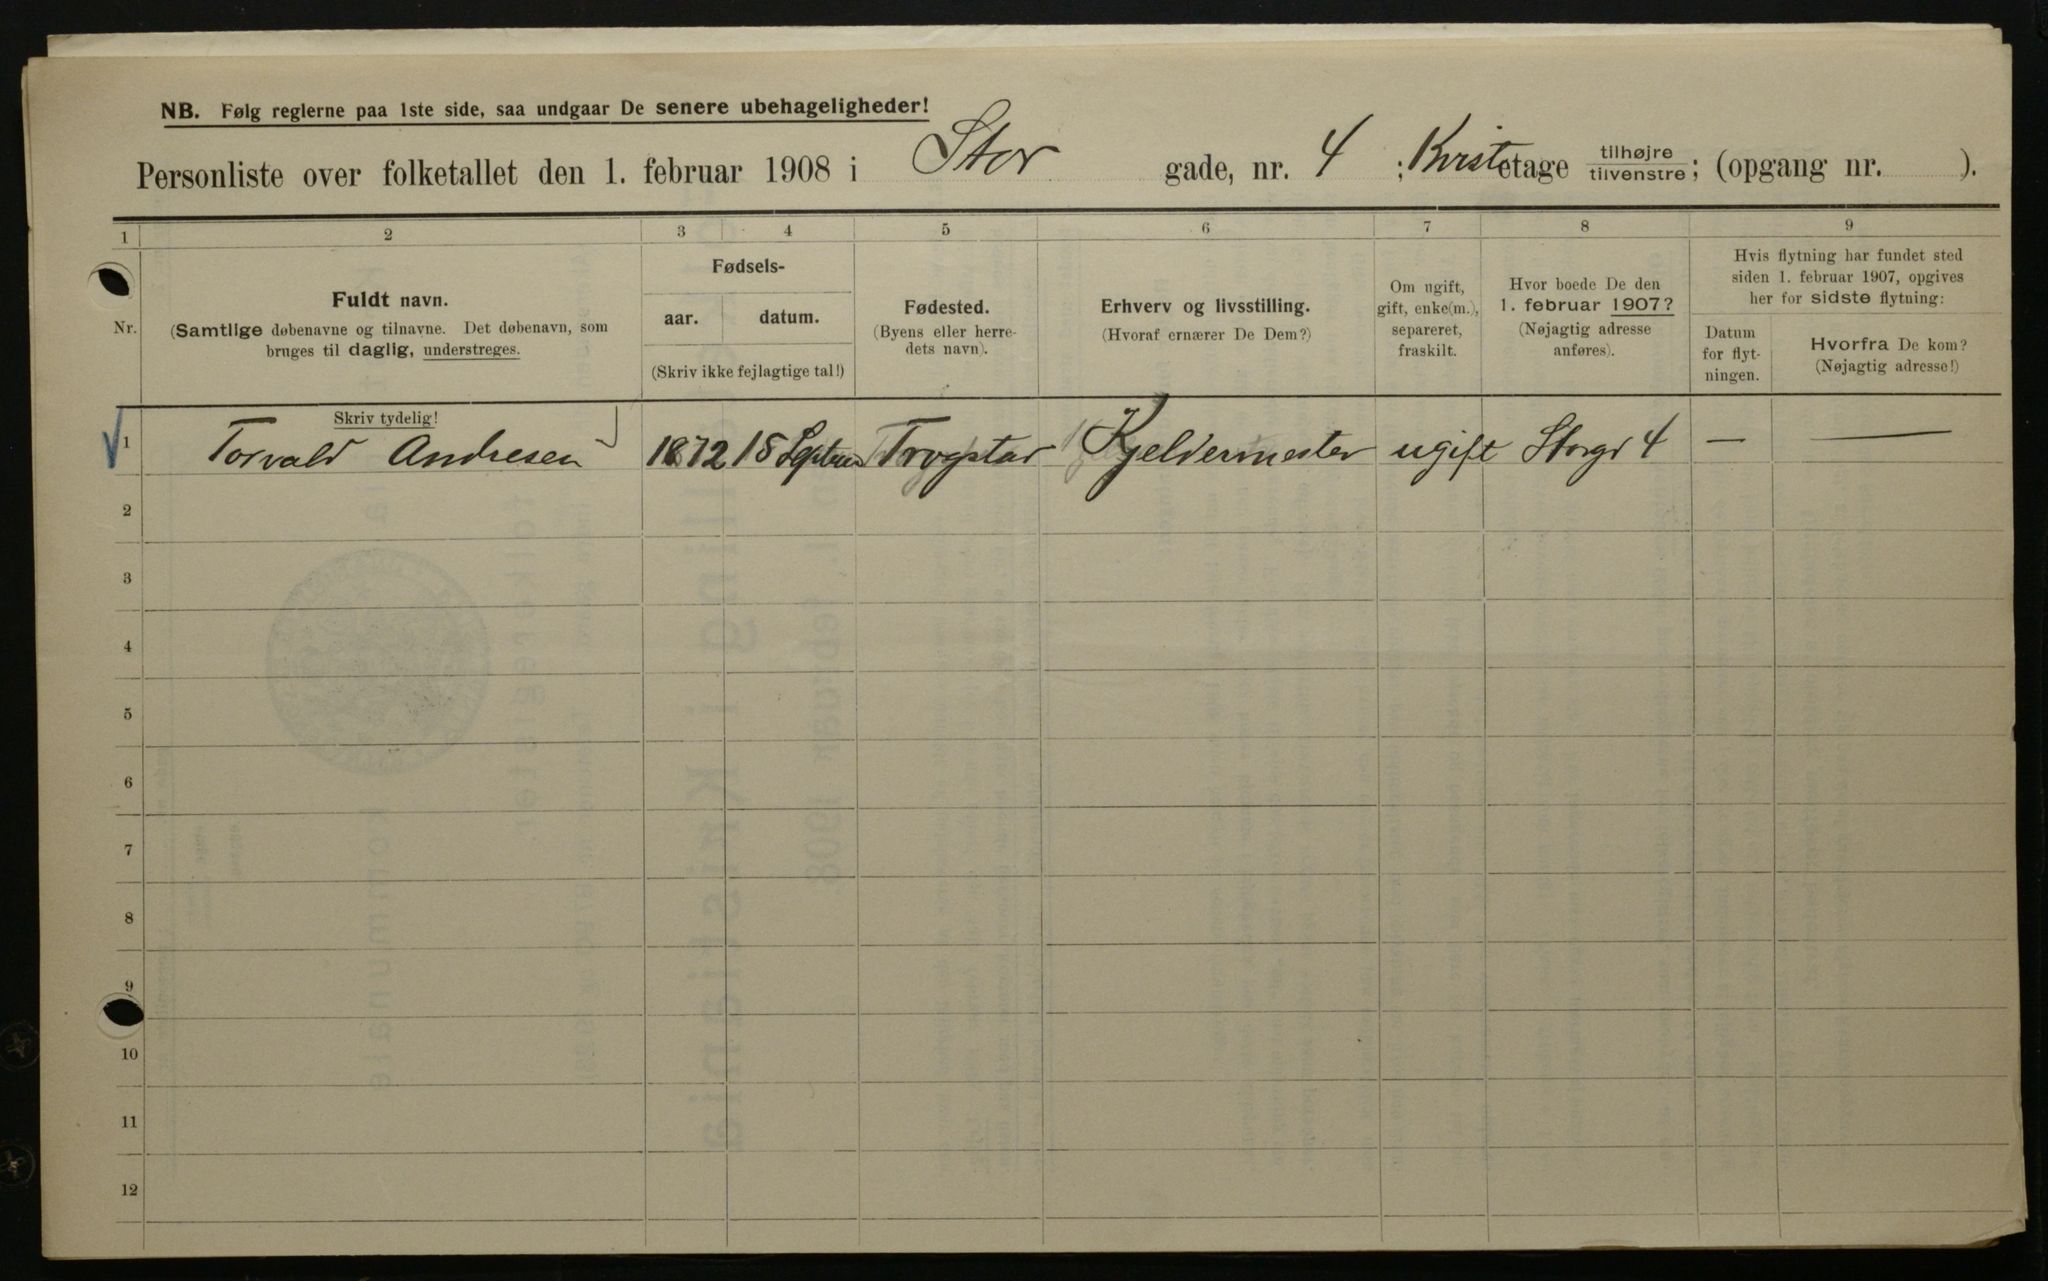 NB. Følg reglerne paa 1ste side, saa undgaar De senere ubehageligheder!
Personliste over folketallet den 1. februar 1908 i Stor gade, nr. 4 ; Kvist etage tilhøjre tilvenstre ; (opgang nr. ).
1 2 3 4 5 6 7 8 9
Nr.
Fuldt navn.
(Samtlige døbenavne og tilnavne. Det døbenavn, som
bruges til daglig, understreges.
Fødsels-
aar. datum.
(Skriv ikke fejlagtige tal!)
Fødested.
(Byens eller herre-
dets navn).
Erhverv og livsstilling.
(Hvoraf ernærer De Dem?)
Om ugift,
gift, enke(m.),
separeret,
fraskilt.
Hvor boede De den
1. februar 1907?
(Nøjagtig adresse
anføres).
Hvis flytning har fundet sted
siden 1. februar 1907, opgives
her for sidste flytning:
Datum
for flyt-
ningen.
Hvorfra De kom?
(Nøjagtig adresse!)
Skriv tydelig!
1 Torvald Andresen 1872 18 Trygstar Kjeldermester ugift Storgd 4 — —
2
3
4
5
6
7
8
9
10
11
12